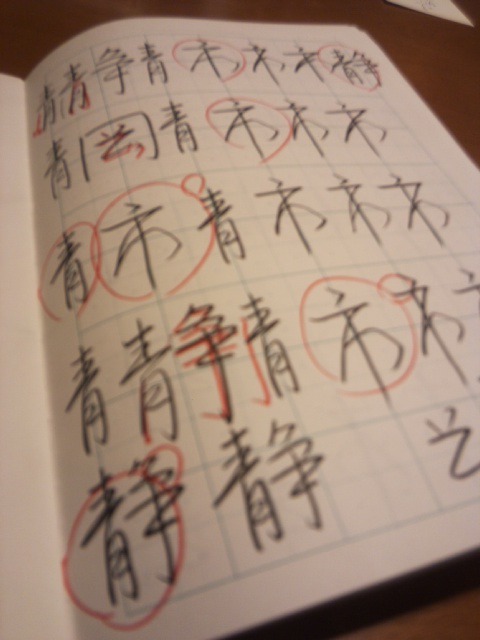 青青争青市市市静
青岡青市市市
青市青市市市
青青争青市市市
静静